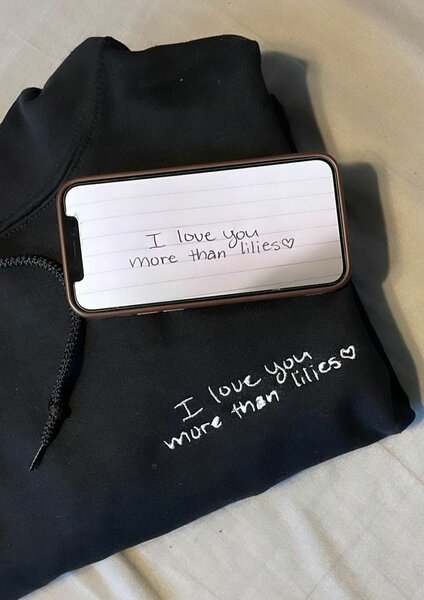 I love you
more than lilies♡
I love you
more than lilies♡